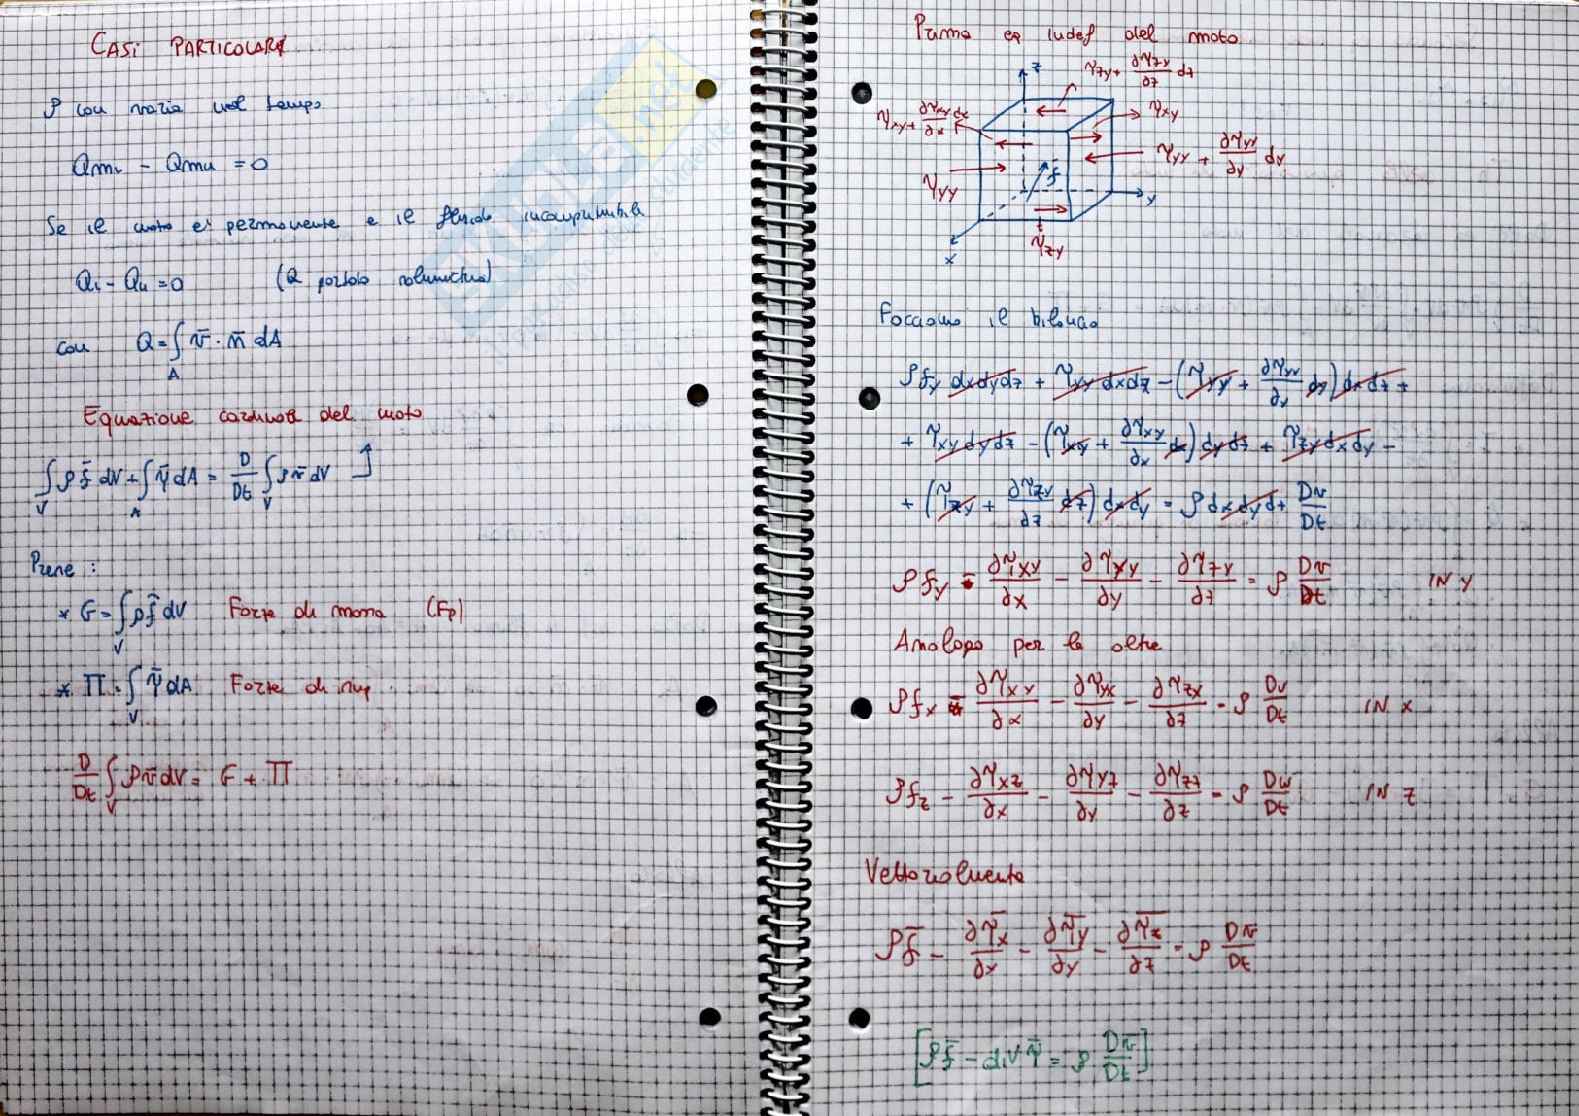 CASI PARTICOLARI
ρ con varia nel tempo
Qmi - Qmu = 0
Se il moto è permanente e il fluido incomprimibile
Qi - Qu = 0 (Q portata volumetrica)
con Q = ∫_A v̄ · n̄ dA
Equazione cardinale del moto
∫_V ρ f̄ dV + ∫_A τ̄ dA = D/Dt ∫_V ρ v̄ dV
Pone :
* G = ∫_V ρ f̄ dV Forze di massa (Fp)
* Π = ∫_V τ̄ dA Forze di sup
D/Dt ∫_V ρ v̄ dV = G + Π
Prima eq indef del moto
z
τzy + ∂τzy/∂z dz
τxy + ∂τxy/∂x dx
τxy
τyy + ∂τyy/∂y dy
τyy
f
y
τzy
x
Facciamo il bilancio
ρ fy dxdydz + τyy dxdz - (τyy + ∂τyy/∂y dy) dxdz +
+ τxy dydz - (τxy + ∂τxy/∂x dx) dydz + τzy dxdy -
+ (τzy + ∂τzy/∂z dz) dxdy = ρ dxdydz Dv/Dt
ρ fy - ∂τxy/∂x - ∂τyy/∂y - ∂τzy/∂z = ρ Dv/Dt IN Y
Analogo per le altre
ρ fx - ∂τxx/∂x - ∂τyx/∂y - ∂τzx/∂z = ρ Du/Dt IN X
ρ fz - ∂τxz/∂x - ∂τyz/∂y - ∂τzz/∂z = ρ Dw/Dt IN Z
Vettorialmente
ρ f̄ - ∂τ̄x/∂x - ∂τ̄y/∂y - ∂τ̄z/∂z = ρ Dv/Dt
[ρ f̄ - div τ̄ = ρ Dv̄/Dt]